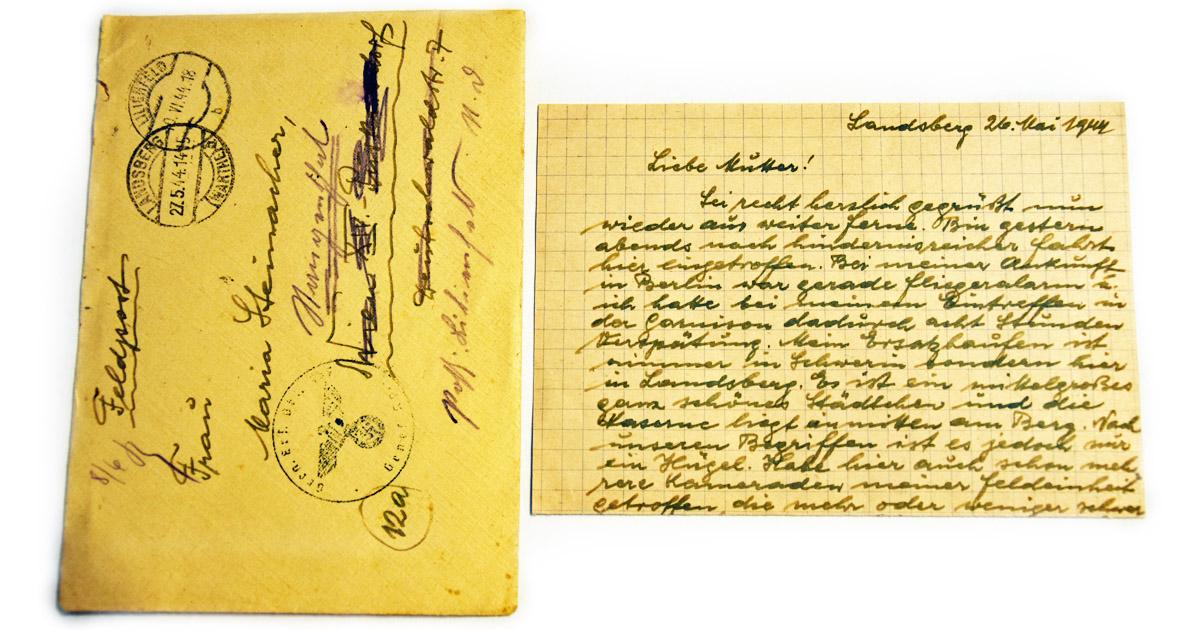 Feldpost
Frau
Maria Steinmacher,
Wien
Post: Lilienfeld N. D
12a
LILIENFELD
VI.44.18
b
LANDSBERG (WARTHE)
27.5.44.14
Landsberg 26. Mai 1944
Liebe Mutter!
Sei recht herzlich gegrüßt nun
wieder aus weiter Ferne. Bin gestern
abends nach hindernisreicher Fahrt
hier eingetroffen. Bei meiner Ankunft
in Berlin war gerade Fliegeralarm u.
ich hatte bei meinem Eintreffen in
der Garnison dadurch acht Stunden
Verspätung. Mein Ersatzhaufen ist
nimmer in Schwerin sondern hier
in Landsberg. Es ist ein mittelgroßes
ganz schönes Städtchen und die
Kaserne liegt inmitten am Berg. Nach
unseren Begriffen ist es jedoch nur
ein Hügel. Habe hier auch schon meh
rere Kameraden meiner Feldeinheit
getroffen die mehr oder weniger schwer